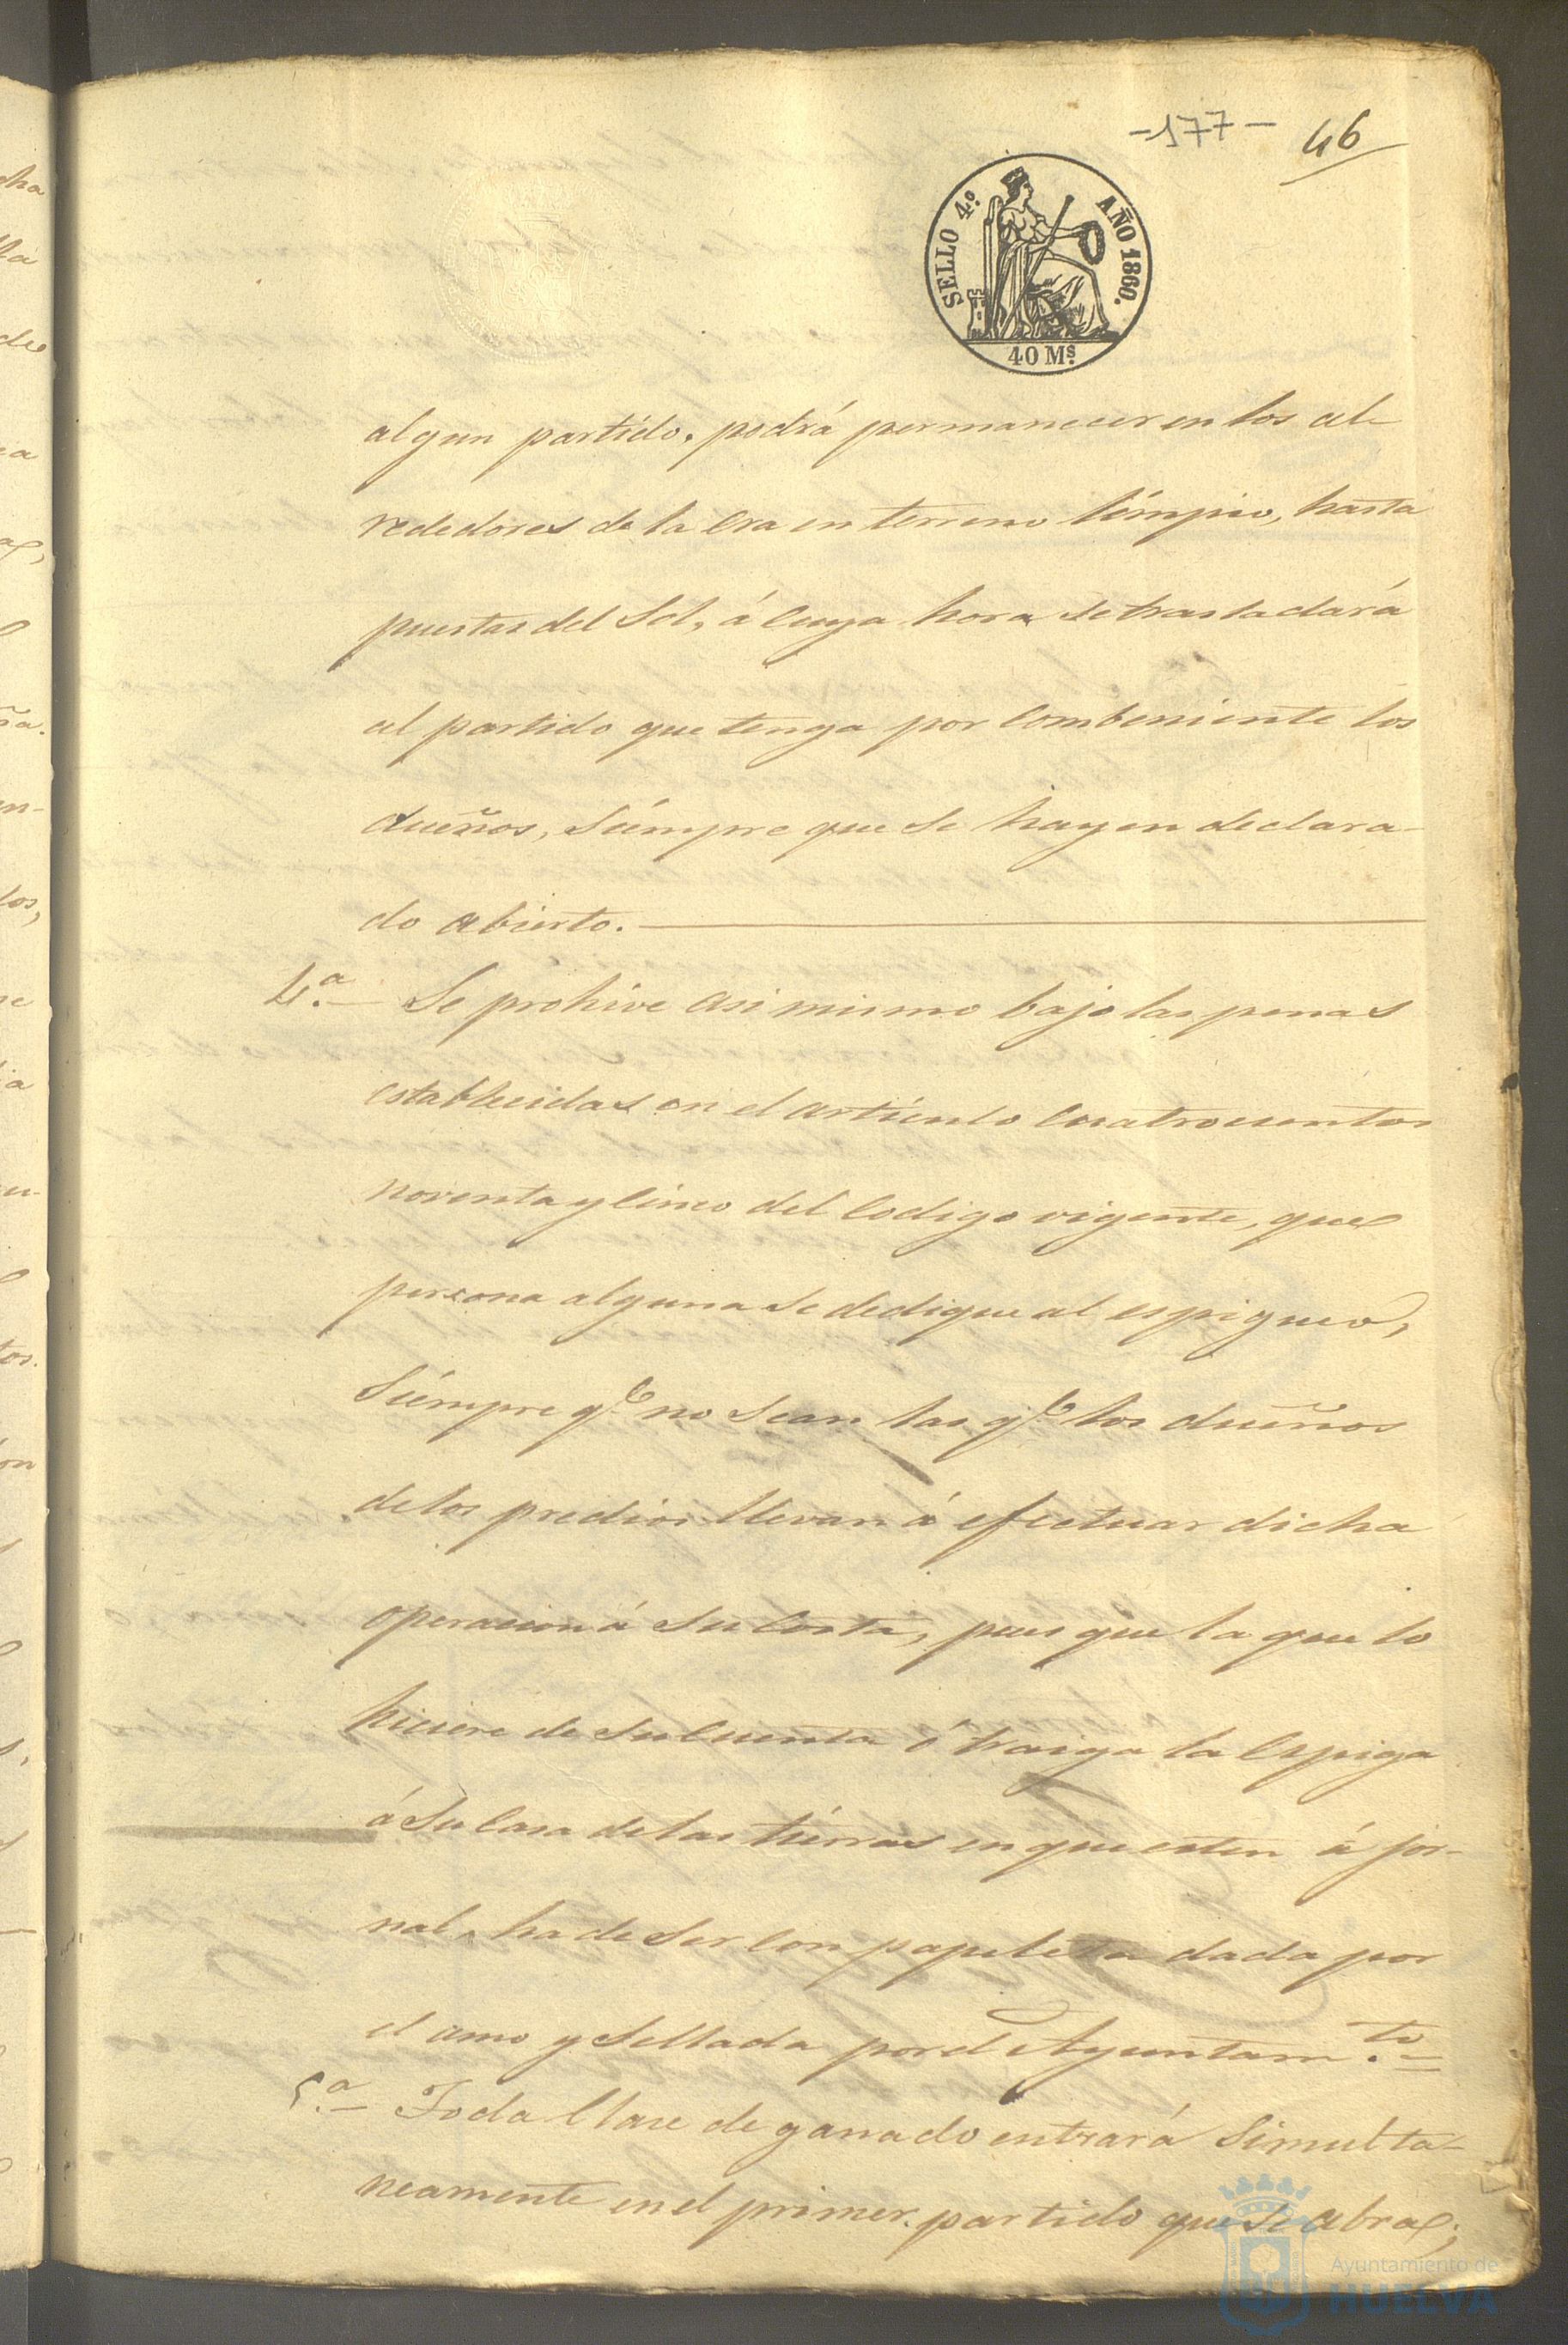 -177-
46
SELLO 4.º AÑO 1860.
40 Ms.
algun partido, podrá permanecer en los al-
rededores de la era en terreno límpio, hasta
puestas del Sol, á cuya hora se trasladará
al partido que tenga por combeniente los
dueños, siémpre que se hayen declara-
do abierto.
4.ª Se prohive asi mismo bajo las penas
establecidas en el artículo cuatrocientos
noventa y cinco del Codigo vigente, que
persona alguna se dedique al espigueo,
siémpre qe. no sean las qe. los dueños
de los predios llevan á efectuar dicha
operacion á su costa, pues que la que lo
hiciere de su cuenta ó traiga la espiga
á su casa de las tiérras en que esten á jor-
nal, ha de ser con papeleta dada por
el amo y sellada por el Ayuntamto.
5.ª Toda clase de ganado entrará simulta-
neamente en el primer partido que se abra;
Ayuntamiento de
HUELVA